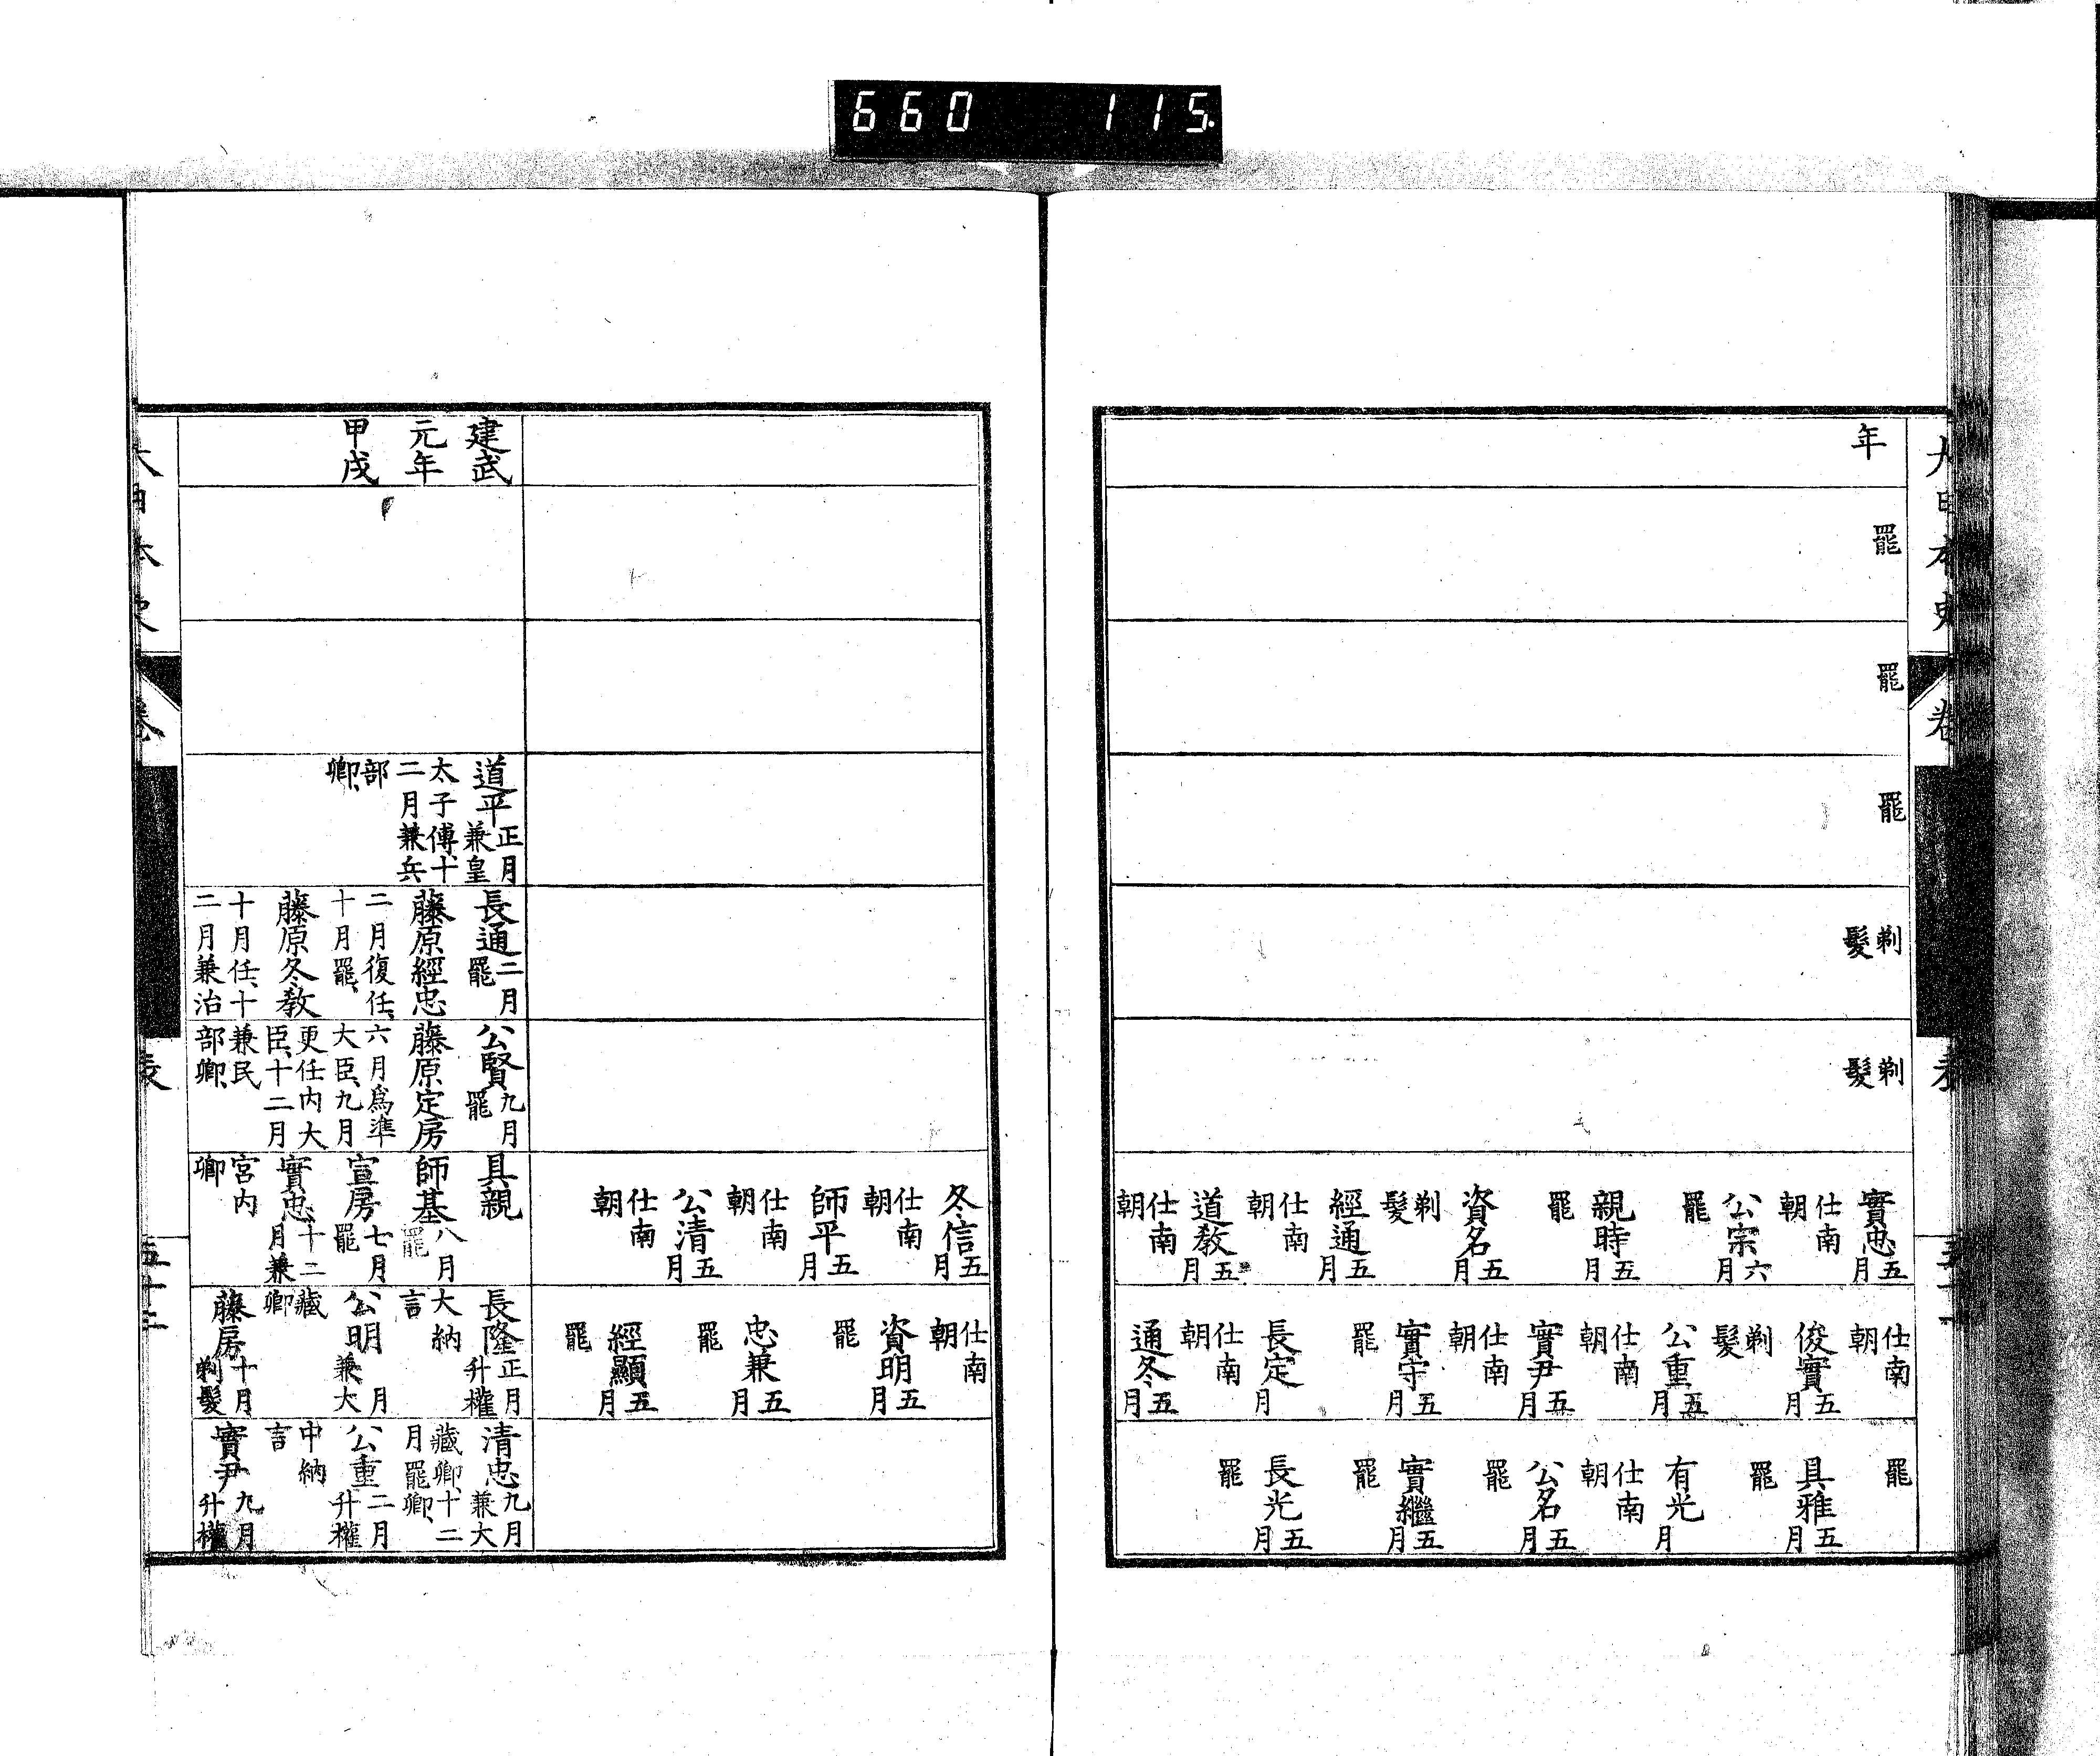 660 115.
大日本史
卷
表
年
罷
罷
罷
剃髮
剃髮
實忠五月仕南朝
公宗六月罷
親時五月罷
資名五月剃髮
經通五月仕南朝
道教五月仕南朝
仕南朝
俊實五月剃髮
公重五月仕南朝
實尹五月仕南朝
實守五月罷
長定月仕南朝
通冬五月
罷
具雅五月罷
有光月仕南朝
公名五月罷
實繼五月罷
長光五月罷
冬信五月仕南朝
師平五月仕南朝
公清五月仕南朝
仕南朝
資明五月罷
忠兼五月罷
經顯五月罷
建武
元年
甲戌
道平正月兼皇太子傅、十二月兼兵部卿、
長通二月罷
藤原經忠二月復任、十月罷、
藤原冬教十月任、十二月兼治部卿、
公賢九月罷
藤原定房六月爲準大臣、九月更任内大臣、十二月兼民
具親
師基八月罷
宣房七月罷
實忠十二月兼宮内卿
長隆正月升權大納言
公明月兼大藏卿
藤房十月剃髮
清忠九月兼大藏卿、十二月罷卿、
公重二月升權中納言
實尹九月升權
大日本史
卷
表
五十三